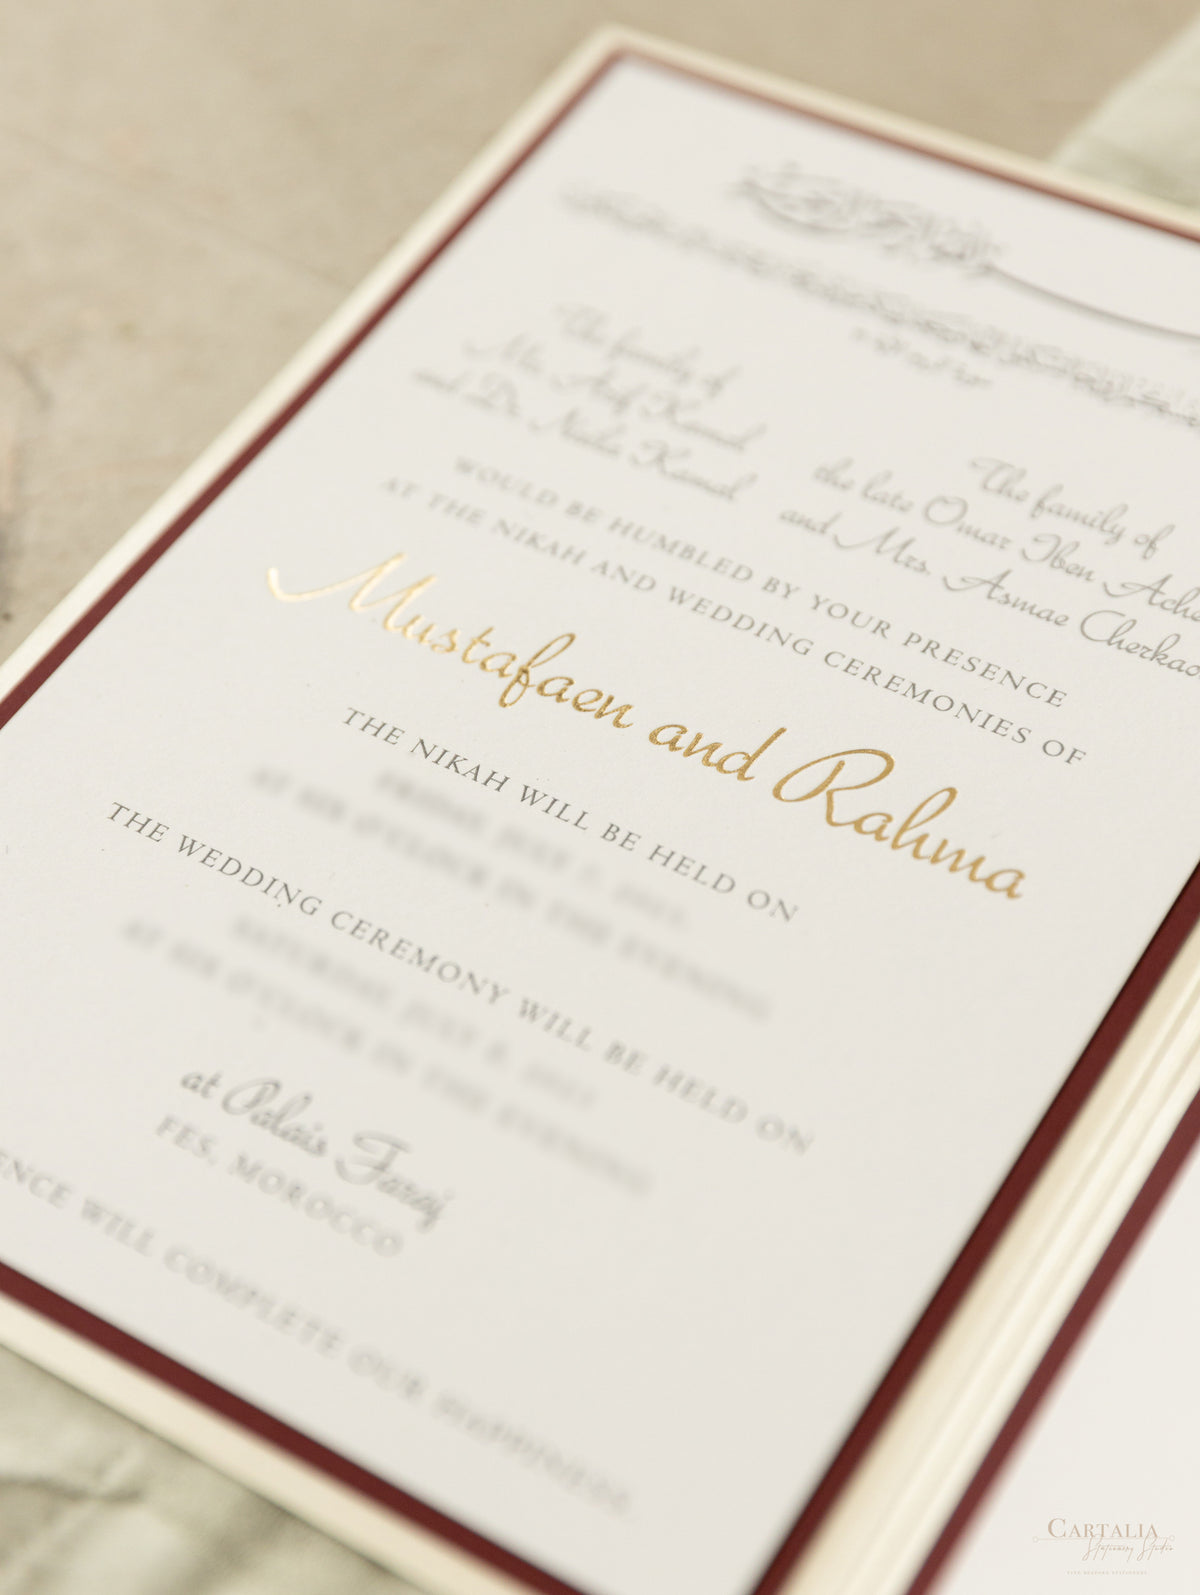 The family of
Mr. Arif Kamal
and Dr. Nadia Kamal
The family of
the late Omar Iben
and Mrs. Asmae
WOULD BE HUMBLED BY YOUR PRESENCE
AT THE NIKAH AND WEDDING CEREMONIES OF
Mustafaen and Rahma
THE NIKAH WILL BE HELD ON
AT SIX O'CLOCK IN THE EVENING
THE WEDDING CEREMONY WILL BE HELD ON
AT SIX O'CLOCK IN THE EVENING
at Palais Faraj
FES, MOROCCO
WILL COMPLETE OUR HAPPINESS
CARTALIA
Stationery Studio